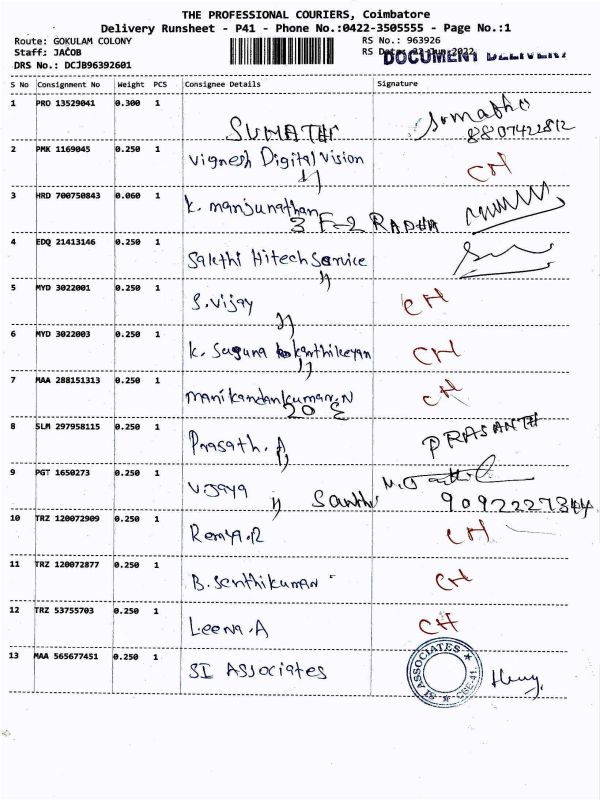 THE PROFESSIONAL COURIERS, Coimbatore
Delivery Runsheet - P41 - Phone No.:0422-3505555 - Page No.:1
Route: GOKULAM COLONY RS No.: 963926
Staff: JACOB RS Date: 22-Jun-2022
DOCUMENT DELIVERY
DRS No.: DCJB96392601
S No Consignment No Weight PCS Consignee Details Signature
1 PRO 13529041 0.300 1 SUMATHI Sumathi
8807422812
2 PMK 1169045 0.250 1 Vignesh Digital Vision CH
3 HRD 700750843 0.060 1 K. manjunathan
3 F-2 RADHA
4 EDQ 21413146 0.250 1 Sakthi Hitech Service
5 MYD 3022001 0.250 1 S.Vijay CH
6 MYD 3022003 0.250 1 K. Suguna Karthikeyan CH
7 MAA 288151313 0.250 1 Manikandankumar.N CH
20 E
8 SLM 297958115 0.250 1 Prasath. A PRASANTH
9 PGT 1650273 0.250 1 Vijaya Santhi
9092227344
10 TRZ 120072909 0.250 1 Remya.R CH
11 TRZ 120072877 0.250 1 B.Senthikuman CH
12 TRZ 53755703 0.250 1 Leena.A CH
13 MAA 565677451 0.250 1 SI Associates
SI ASSOCIATES ★ CBE-41 ★